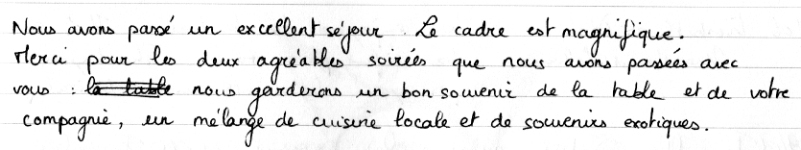 Nous avons passé un excellent séjour. Le cadre est magnifique.
Merci pour les deux agréables soirées que nous avons passées avec
vous : la table nous garderons un bon souvenir de la table et de votre
compagnie, un mélange de cuisine locale et de souvenirs exotiques.